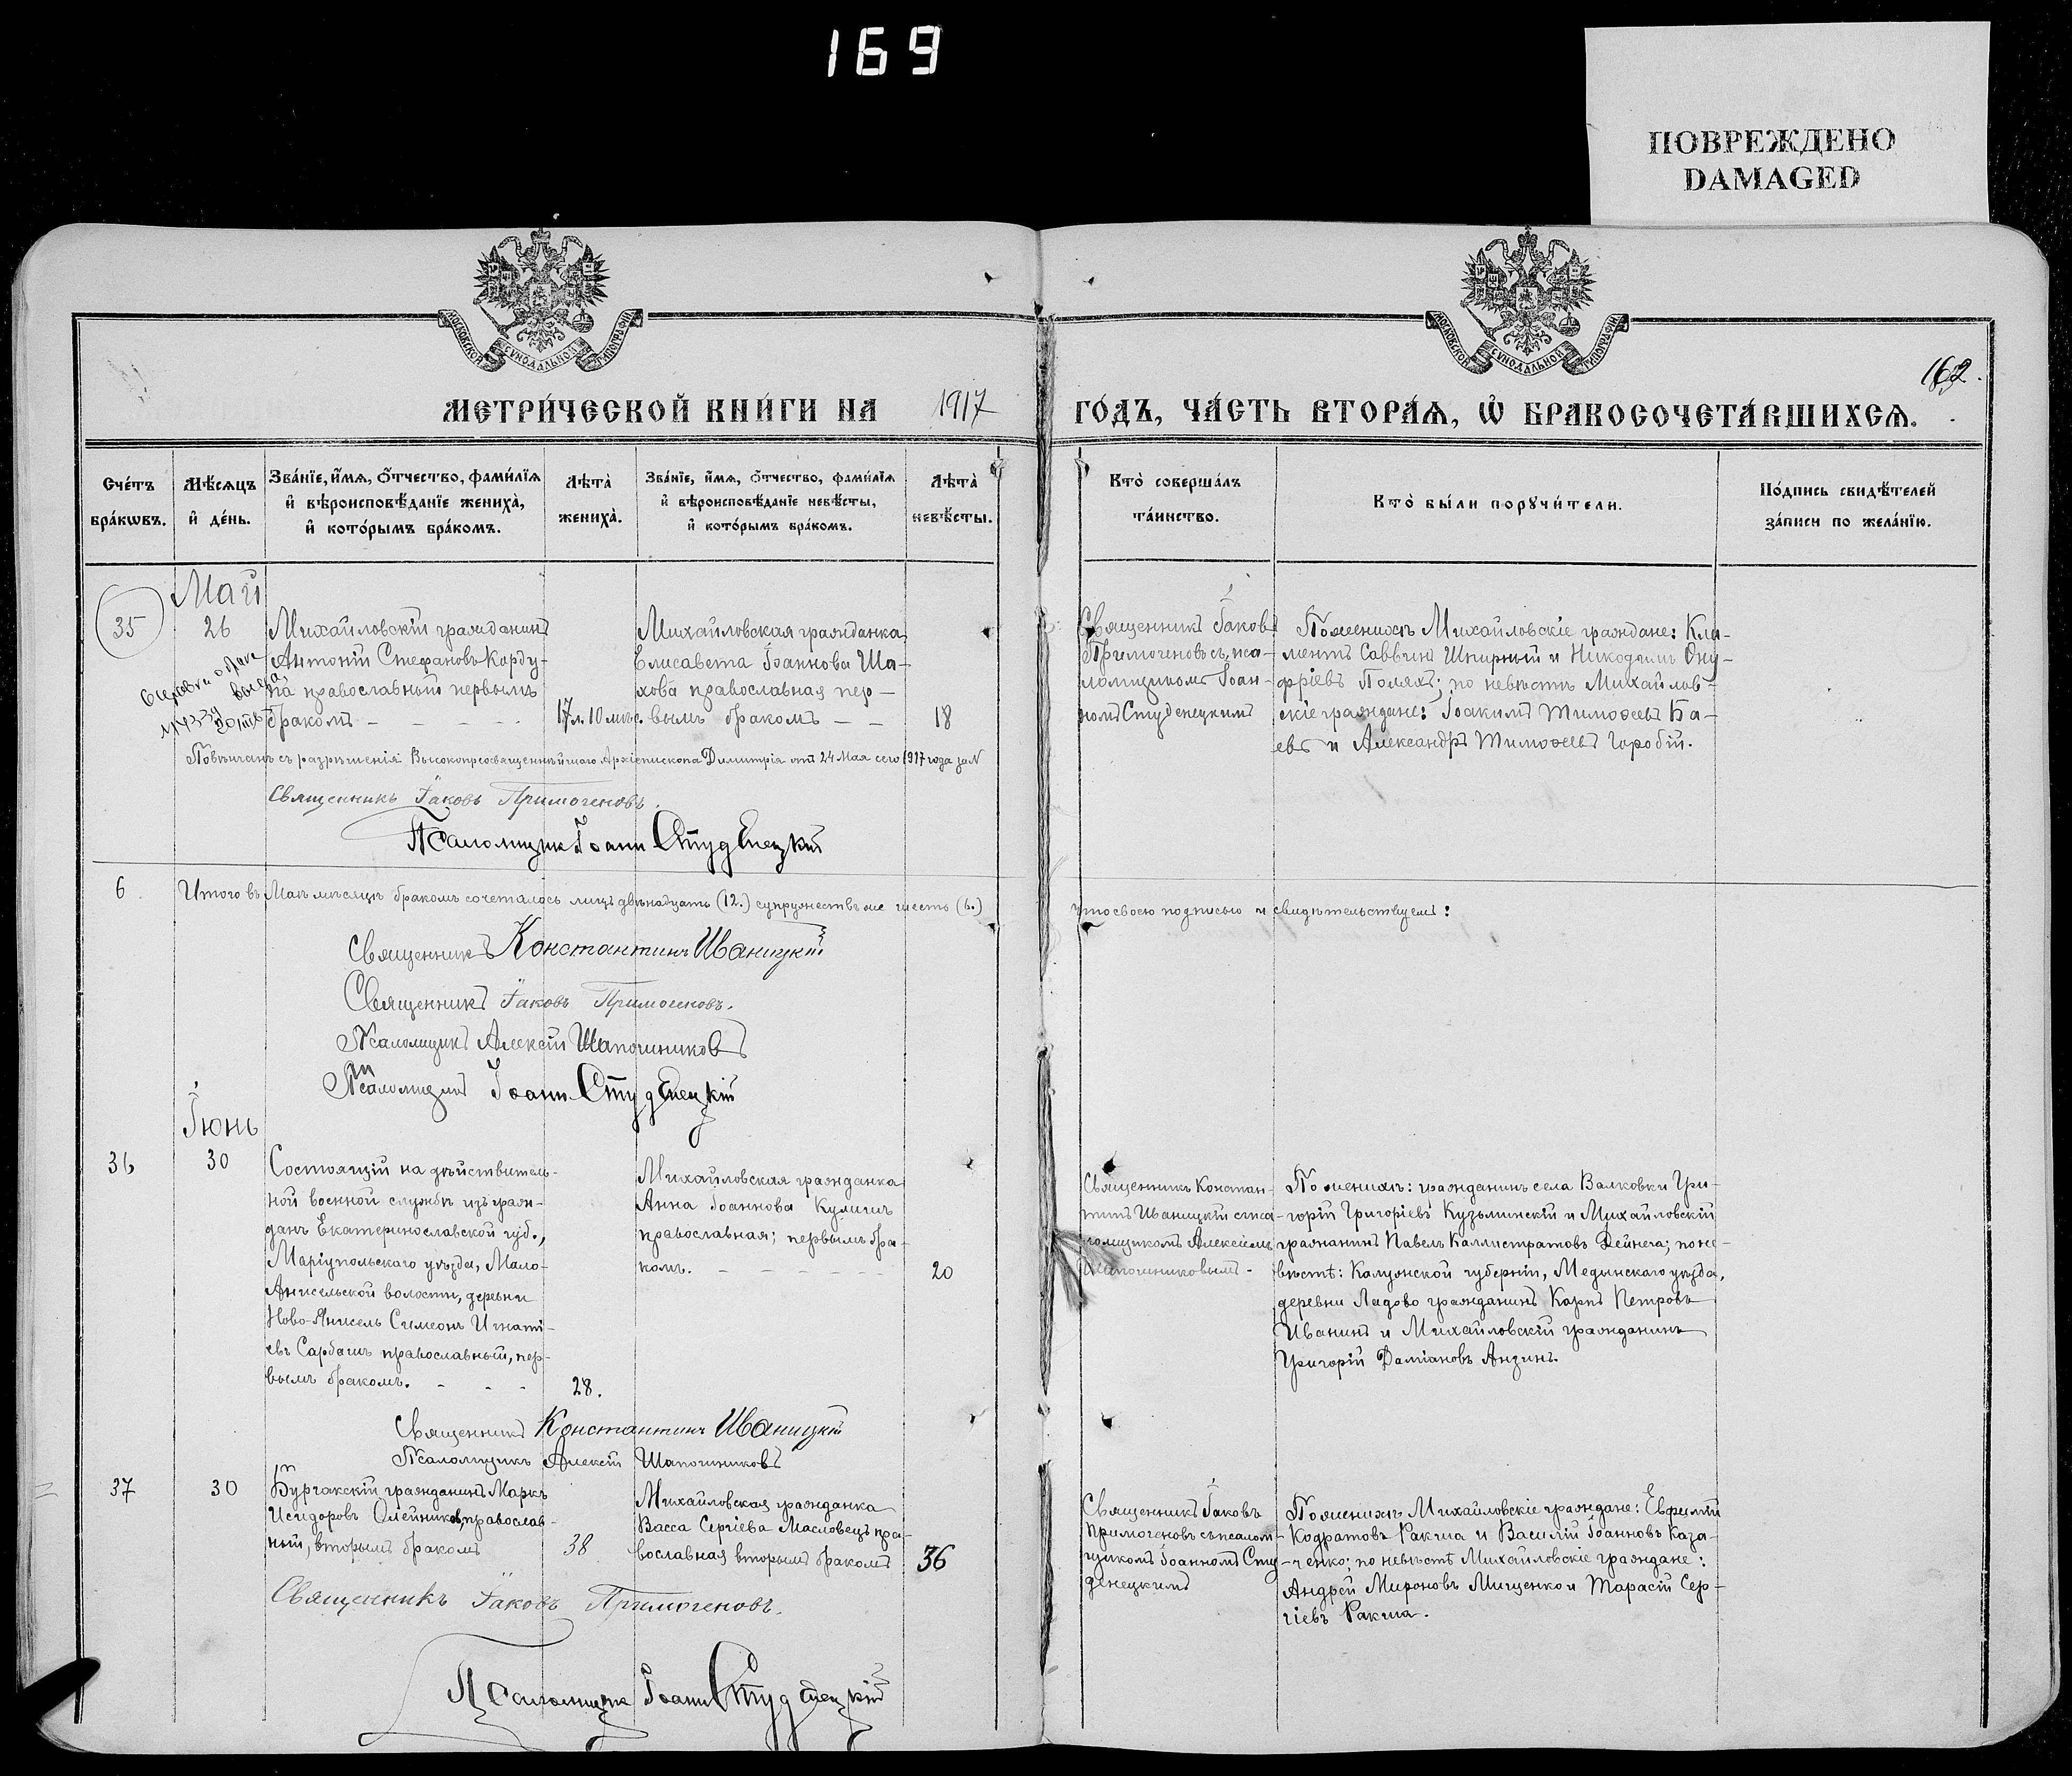 169
ПОВРЕЖДЕНО
DAMAGED
МОСКОВСКОЙ СѴНОДАЛЬНОЙ ТИПОГРАФІИ
МОСКОВСКОЙ СѴНОДАЛЬНОЙ ТИПОГРАФІИ
162.
МЕТРИ́ЧЕСКОЙ КНИ́ГИ НА 1917 ГО́ДЪ, ЧА́СТЬ ВТОРА́Я, Ѡ҆ БРАКОСОЧЕТА́ВШИХСЯ.
Сче́тъ
бра́кѡвъ.
Мѣ́сяцъ
и҆ де́нь.
Зва́нїе, и҆́мя, ѻ҆́тчество, фами́лїя
и҆ вѣроисповѣ́данїе жениха̀,
и҆ кото́рымъ бра́комъ.
Лѣта̀
жениха̀.
Зва́нїе, и҆́мя, ѻ҆́тчество, фами́лїя
и҆ вѣроисповѣ́данїе невѣ́сты,
и҆ кото́рымъ бра́комъ.
Лѣта̀
невѣ́сты.
Кто̀ соверша́лъ
та́инство.
Кто̀ бы́ли порꙋчи́тели.
По́дпись свидѣ́телей
за́писи по жела́нїю.
Май
35
26
Михайловскій гражданинъ
Антоній Стефановъ Корду-
па православный первымъ
бракомъ - - - -
17 л. 10 мѣс.
Михайловская гражданка
Елисавета Іоаннова Ша-
хова православная пер-
вымъ бракомъ - -
18
Священникъ Іаковъ
Примогеновъ съ пса-
ломщикомъ Іоан-
номъ Студенецкимъ
По женихѣ Михайловскіе граждане: Кли-
ментъ Саввинъ Шпирный и Никодимъ Ону-
фріевъ Поляхъ; по невѣстѣ Михайлов-
скіе граждане: Іоакимъ Тимоѳеевъ Ба-
евъ и Александръ Тимоѳеевъ Горобій.
Повѣнчанъ съ разрѣшенія Высокопреосвященнѣйшаго Архіепископа Димитрія отъ 24 Мая сего 1917 года за N
Священникъ Іаковъ Примогеновъ.
Псаломщикъ Іоаннъ Студенецкій
6
Итого въ Маѣ мѣсяцѣ бракомъ сочеталось лицъ двѣнадцать (12.) супружествъ же шесть (6.)
что своею подписью и свидѣтельствуемъ:
Священникъ Константинъ Иваницкій
Священникъ Іаковъ Примогеновъ.
Псаломщикъ Алексій Шапошниковъ
Псаломщикъ Іоаннъ Студенецкій
Іюнь
36
30
Состоящій на дѣйствитель-
ной военной службѣ изъ граж-
данъ Екатеринославской губ.,
Маріупольскаго уѣзда, Мало-
Янисельской волости, деревни
Ново-Янисель Симеонъ Игнаті-
евъ Сарбашъ православный, пер-
вымъ бракомъ. - - -
28.
Михайловская гражданка
Анна Іоаннова Куличъ
православная; первымъ бра-
комъ. - - - -
20
Священникъ Констан-
тинъ Иваницкій съ пса-
ломщикомъ Алексіемъ
Шапошниковымъ -
По женихѣ: гражданинъ села Валковки Гри-
горій Григоріевъ Кузьминскій и Михайловскій
гражданинъ Павелъ Каллистратовъ Дейнега; по не-
вѣстѣ: Калужской губерніи, Медынскаго уѣзда,
деревни Ладово гражданинъ Карпъ Петровъ
Иванинъ и Михайловскій гражданинъ
Григорій Даміановъ Анзинъ.
Священникъ Константинъ Иваницкій
Псаломщикъ Алексій Шапошниковъ
37
30
Бурчакскій гражданинъ Маркъ
Исидоровъ Олейниковъ, православ-
ный, вторымъ бракомъ
38
Михайловская гражданка
Васса Сергіева Масловецъ пра-
вославная вторымъ бракомъ
36
Священникъ Іаковъ
Примогеновъ съ псалом-
щикомъ Іоанномъ Сту-
денецкимъ
По женихѣ Михайловскіе граждане: Евфимій
Кодратовъ Ракша и Василій Іоанновъ Каза-
ченко; по невѣстѣ Михайловскіе граждане:
Андрей Мироновъ Мищенко и Тарасій Сер-
гіевъ Ракша.
Священникъ Іаковъ Примогеновъ.
Псаломщикъ Іоаннъ Студенецкій